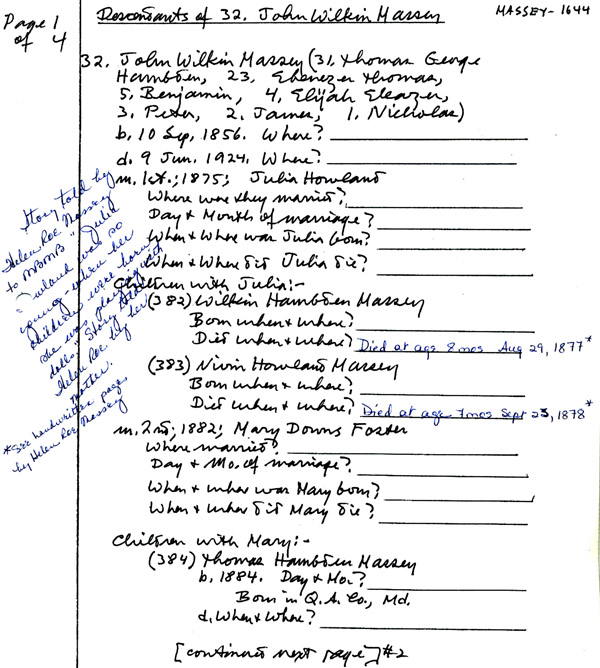 Page 1
of 4
Descendants of 32. John Wilkin Massey
MASSEY-1644
32. John Wilkin Massey (31, Thomas George
Hambden, 23, Ebenezer Thomas,
5. Benjamin, 4, Elijah Eleazer,
3. Peter, 2. James, 1. Nicholas)
b. 10 Sep, 1856. Where?
d. 9 Jun. 1924. Where?
m. 1st.; 1875; Julia Howland
Where were they married?
Day & Month of marriage?
When & Where was Julia born?
When & Where did Julia die?
Children with Julia:-
(382) Wilkin Hambden Massey
Born when & where?
Died when & where? Died at age 8 mos Aug 29, 1877*
(383) Nivin Howland Massey
Born when & where?
Died when & where? Died at age 7 mos Sept 23, 1878*
m. 2nd; 1882; Mary Downs Foster
Where married?
Day & Mo. of marriage?
When & where was Mary born?
When & where did Mary die?
Children with Mary:-
(384) Thomas Hambden Massey
b. 1884. Day & Mo.?
Born in Q. A. Co., Md.
d. When & Where?
[continued next page] #2
Story told by
Helen Roe Massey
to MBMB - Julia
Howland was so
young when her
children were born
she was playing with
dolls. Story told
Helen Roe by her
mother.
*See handwritten page
by Helen Roe Massey